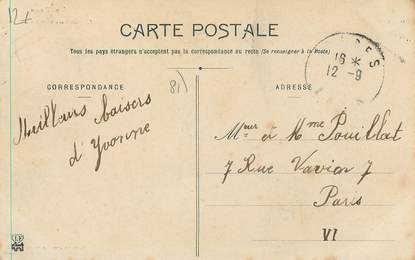 12f
CARTE POSTALE
Tous les pays étrangers n'acceptent pas la correspondance au recto (Se renseigner à la Poste)
CORRESPONDANCE
81)
ADRESSE
16 *
12 - 9
Meilleurs baisers
d'Yvonne
Mmeur & Mme Pouillat
7 Rue Vavin 7
Paris
VI